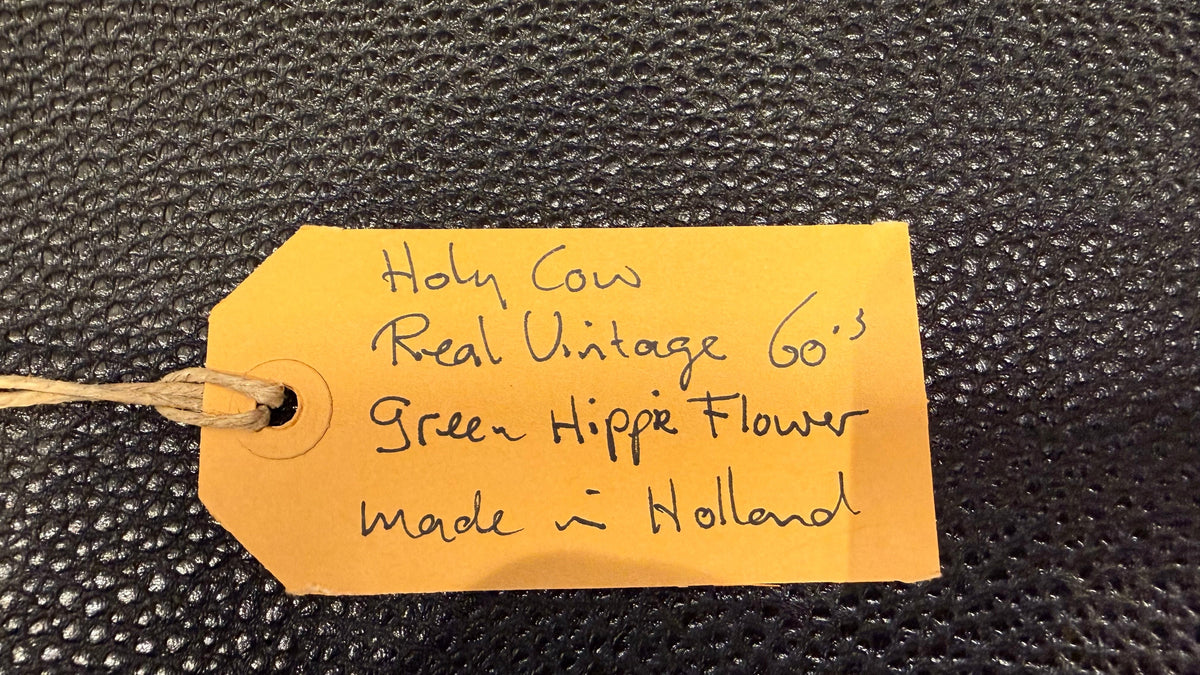 Holy Cow
Real Vintage 60's
Green Hippie Flower
made in Holland